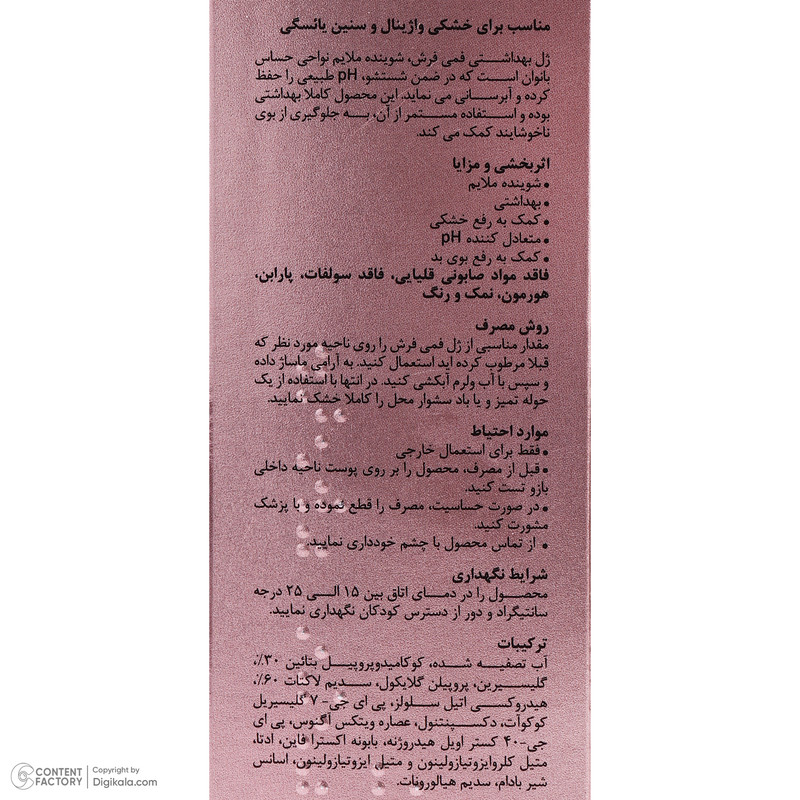 مناسب برای خشکی واژینال و سنین یائسگی
ژل بهداشتی فمی فرش، شوینده ملایم نواحی حساس
بانوان است که در ضمن شستشو، pH طبیعی را حفظ
کرده و آبرسانی می نماید. این محصول کاملا بهداشتی
بوده و استفاده مستمر از آن، به جلوگیری از بوی
ناخوشایند کمک می کند.
اثربخشی و مزایا
• شوینده ملایم
• بهداشتی
• کمک به رفع خشکی
• متعادل کننده pH
• کمک به رفع بوی بد
فاقد مواد صابونی قلیایی، فاقد سولفات، پارابن،
هورمون، نمک و رنگ
روش مصرف
مقدار مناسبی از ژل فمی فرش را روی ناحیه مورد نظر که
قبلا مرطوب کرده اید استعمال کنید. به آرامی ماساژ داده
و سپس با آب ولرم آبکشی کنید. در انتها با استفاده از یک
حوله تمیز و یا باد سشوار محل را کاملا خشک نمایید.
موارد احتیاط
• فقط برای استعمال خارجی
• قبل از مصرف، محصول را بر روی پوست ناحیه داخلی
بازو تست کنید.
• در صورت حساسیت، مصرف را قطع نموده و با پزشک
مشورت کنید.
• از تماس محصول با چشم خودداری نمایید.
شرایط نگهداری
محصول را در دمای اتاق بین ۱۵ الی ۲۵ درجه
سانتیگراد و دور از دسترس کودکان نگهداری نمایید.
ترکیبات
آب تصفیه شده، کوکامیدوپروپیل بتائین ۳۰٪،
گلیسیرین، پروپیلن گلایکول، سدیم لاکتات ۶۰٪،
هیدروکسی اتیل سلولز، پی ای جی- ۷ گلیسیریل
کوکوآت، دکسپنتنول، عصاره ویتکس آگنوس، پی ای
جی-۴۰ کستر اویل هیدروژنه، بابونه اکسترا فاین، ادتا،
متیل کلروایزوتیازولینون و متیل ایزوتیازولینون، اسانس
شیر بادام، سدیم هیالورونات.
CONTENT FACTORY
Copyright by
Digikala.com